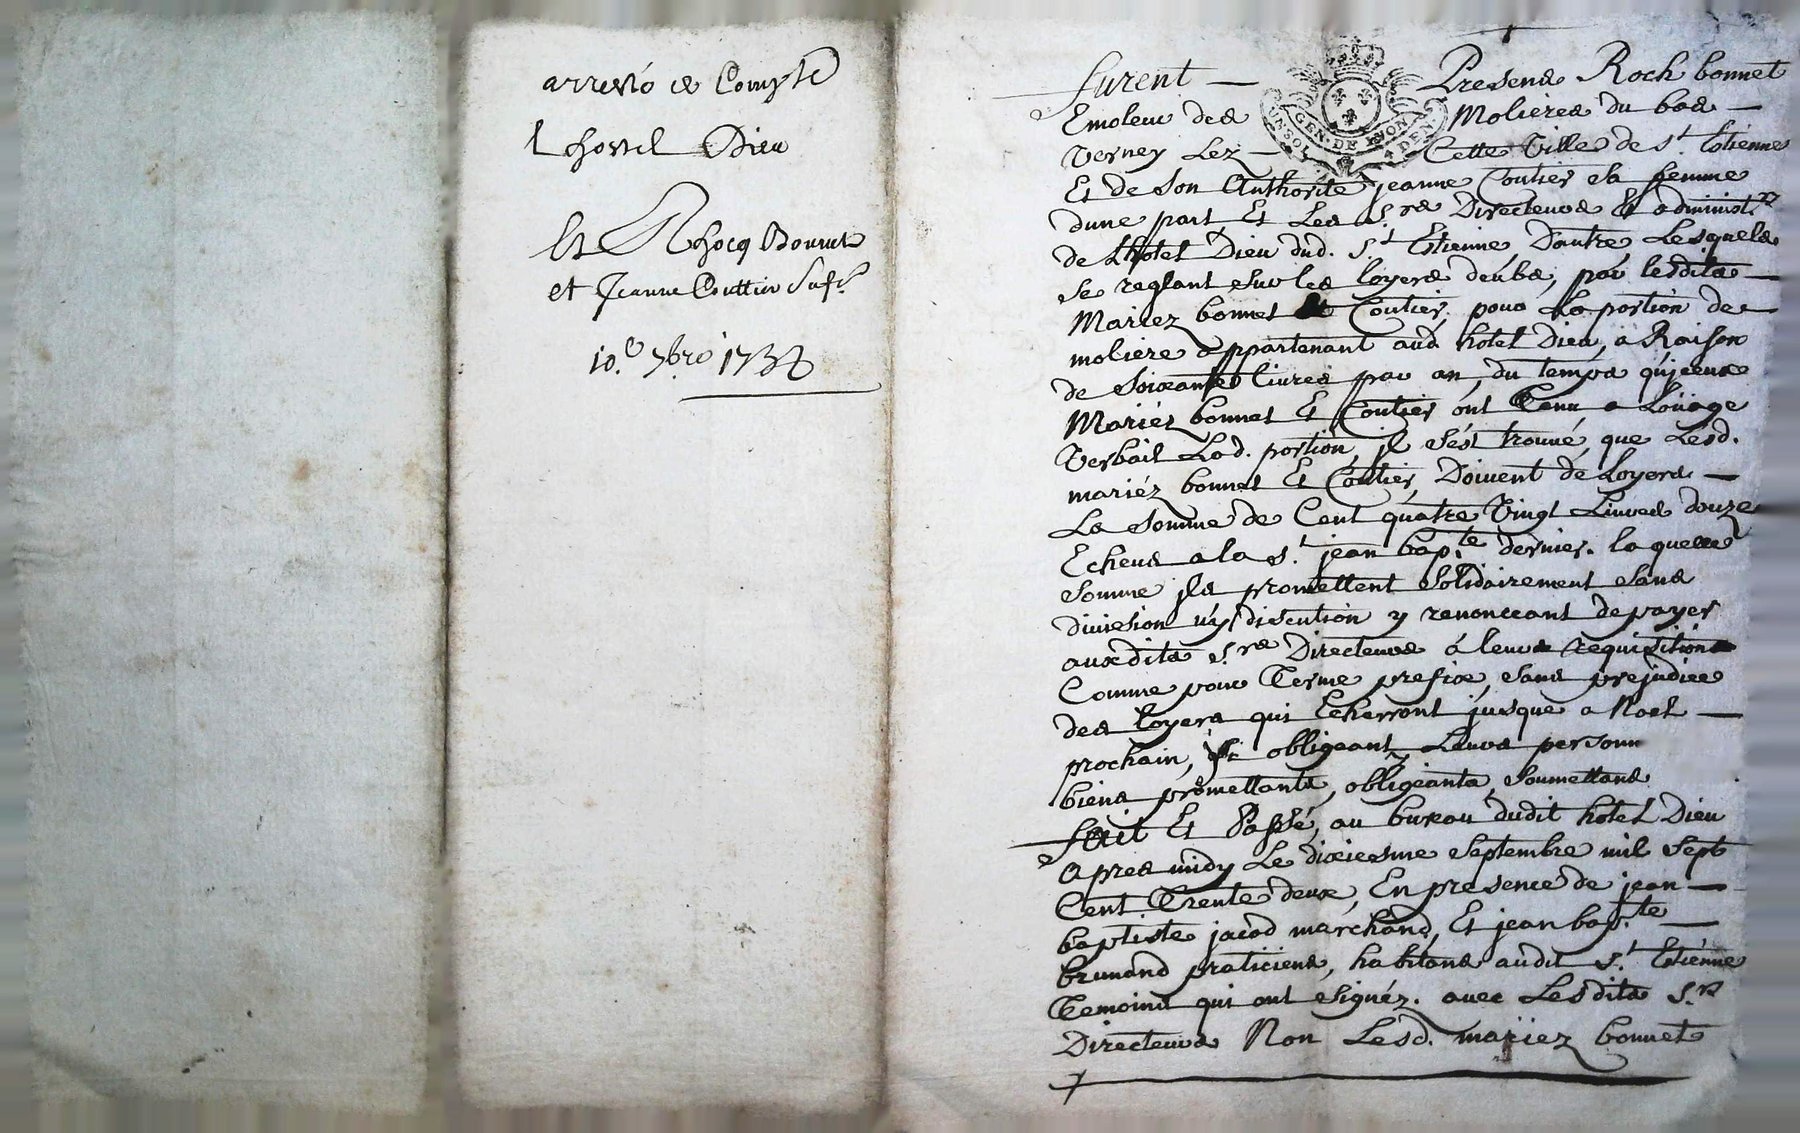 arresté de Compte
lhostel Dieu
Et Rhocq Bonnet
et Jeanne Couttier Sa fe.
10.e 7bre 1732
furent — Presens Roch bonnet
GEN. DE LYON
Emoleur des Molieres du bas —
Verney Lez — Cette Ville de St. Etienne
Et de son Authorité jeanne Coutier sa femme
dune part Et Les Srs. Directeurs & administ.rs
de Lhotel Dieu dud. St. Etienne Dautre Lesquels
se reglant sur les loyers deubs, par lesdits —
Mariez bonnet et Coutier, pour La portion de
moliere appartenant aud hotel Dieu, a Raison
de soixante livres par an, du temps qu'jceux
Mariéz bonnet Et Coutier ont Tenu a Loüage
Verbail Lad. portion, jl s'est trouvé, que Lesd.
mariéz bonnet Et Coutier, Doivent de Loyers —
La somme de Cent quatre Vingt Livres douze
Echeus a la St. jean bap.te dernier. laquelle
somme jls promettent solidairement sans
division n'y discution y renonceant de payer
auxdits Srs. Directeurs á leurs requisitions
Comme pour Terme prefix, sans prejudice
des loyers qui Echerront jusque a Noel —
prochain, obligeant, Leurs personn
biens promettants, obligeants, soumettans
fait Et Passé, au bureau dudit hotel Dieu
Apres midy Le dixiesme septembre mil sept
Cent Trente deux, En presence de jean —
baptiste jacod marchand, Et jean bap.te —
brunand praticiens, habitans audit St. Etienne
Temoins qui ont signéz. avec Lesdits Srs
Directeurs Non Lesd. mariez bonnet